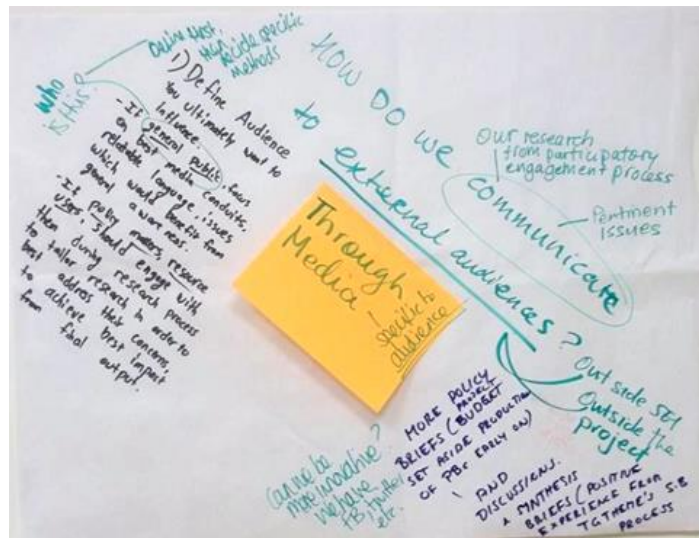 HOW DO WE
communicate
to external audiences?
Our research
from participatory
engagement process
Pertinent
issues
Out side SEI
Outside the
project
Define first,
then decide specific
methods
Who
is this?
1) Define Audience
You ultimately want to
influence.
- If general public, focus
on best media conduits,
relatable language, issues
which would benefit from
general awareness.
- If policy makers, resource
users, should engage with
them during research process
to tailor research in order to
best address their concerns,
to achieve best impact
from final output.
Through
Media
specific to
audience
Can we be
more innovative?
We have
FB, twitter
etc.
MORE POLICY
BRIEFS (PROJECT BUDGET
SET ASIDE PRODUCTION
OF PBs EARLY ON)
AND
DISCUSSIONS.
BRIEFS (POSITIVE
EXPERIENCE FROM
PROCESS